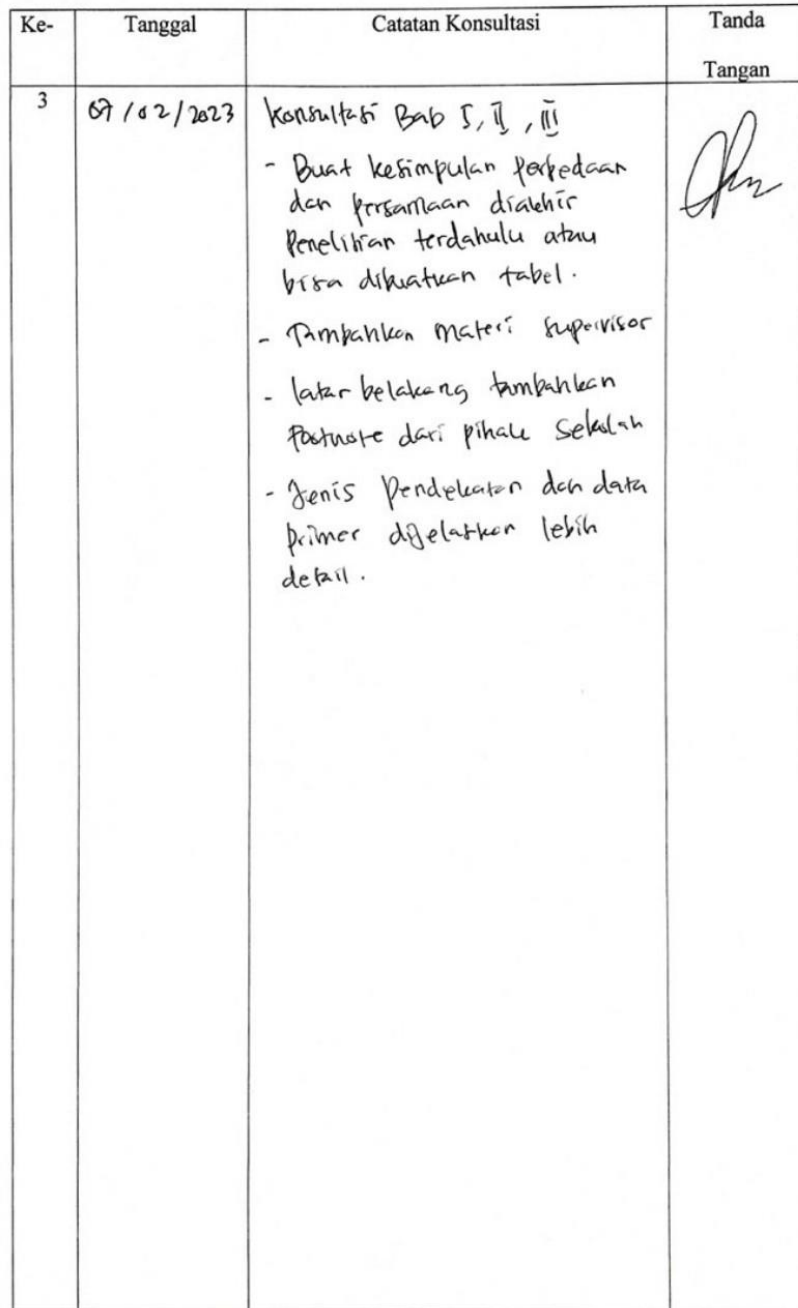 Ke-
Tanggal
Catatan Konsultasi
Tanda
Tangan
3
07/02/2023
Konsultasi Bab I, II, III
- Buat kesimpulan perbedaan
dan persamaan diakhir
Penelitian terdahulu atau
bisa dibuatkan tabel.
- Tambahkan Materi supervisor
- latar belakang tambahkan
Footnote dari pihak Sekolah
- Jenis Pendekatan dan data
primer dijelaskan lebih
detail.